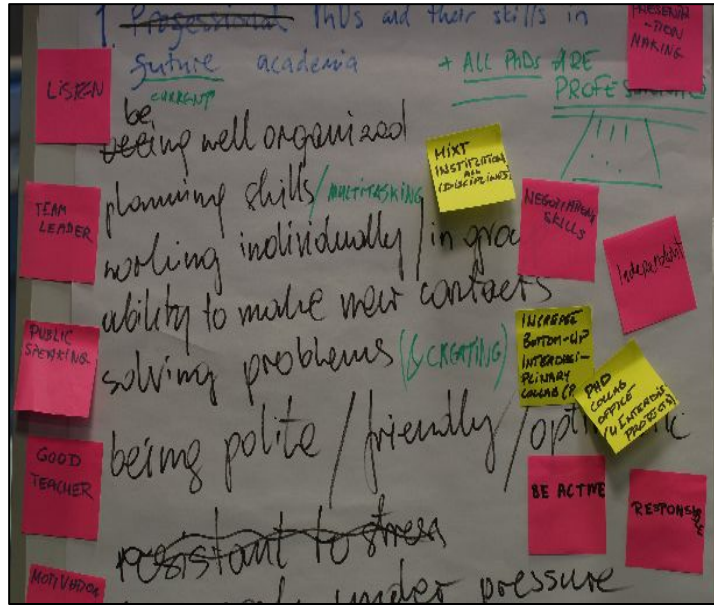 1. Professional PhDs and their skills in
future academia
CURRENT
+ ALL PhDs ARE
PROFESSIONALS
!!!
...
be
being well organized
planning skills / MULTITASKING
working individually / in
ability to make new contacts
solving problems (& CREATING)
being polite / friendly /
resistant to stress
under pressure
LISTEN
TEAM
LEADER
PUBLIC
SPEAKING
GOOD
TEACHER
MOTIVATION
MIXT
INSTITUTION
(DISCIPLINES)
PRESENTA
-TION
MAKING
SKILLS
Independent
INCREASE
BOTTOM-UP
INTERDISCI-
PLINARY
COLLAB
PHD
COLLAB
OFFICE
INTERDIS
PROJECTS)
BE ACTIVE
RESPONSIBLE